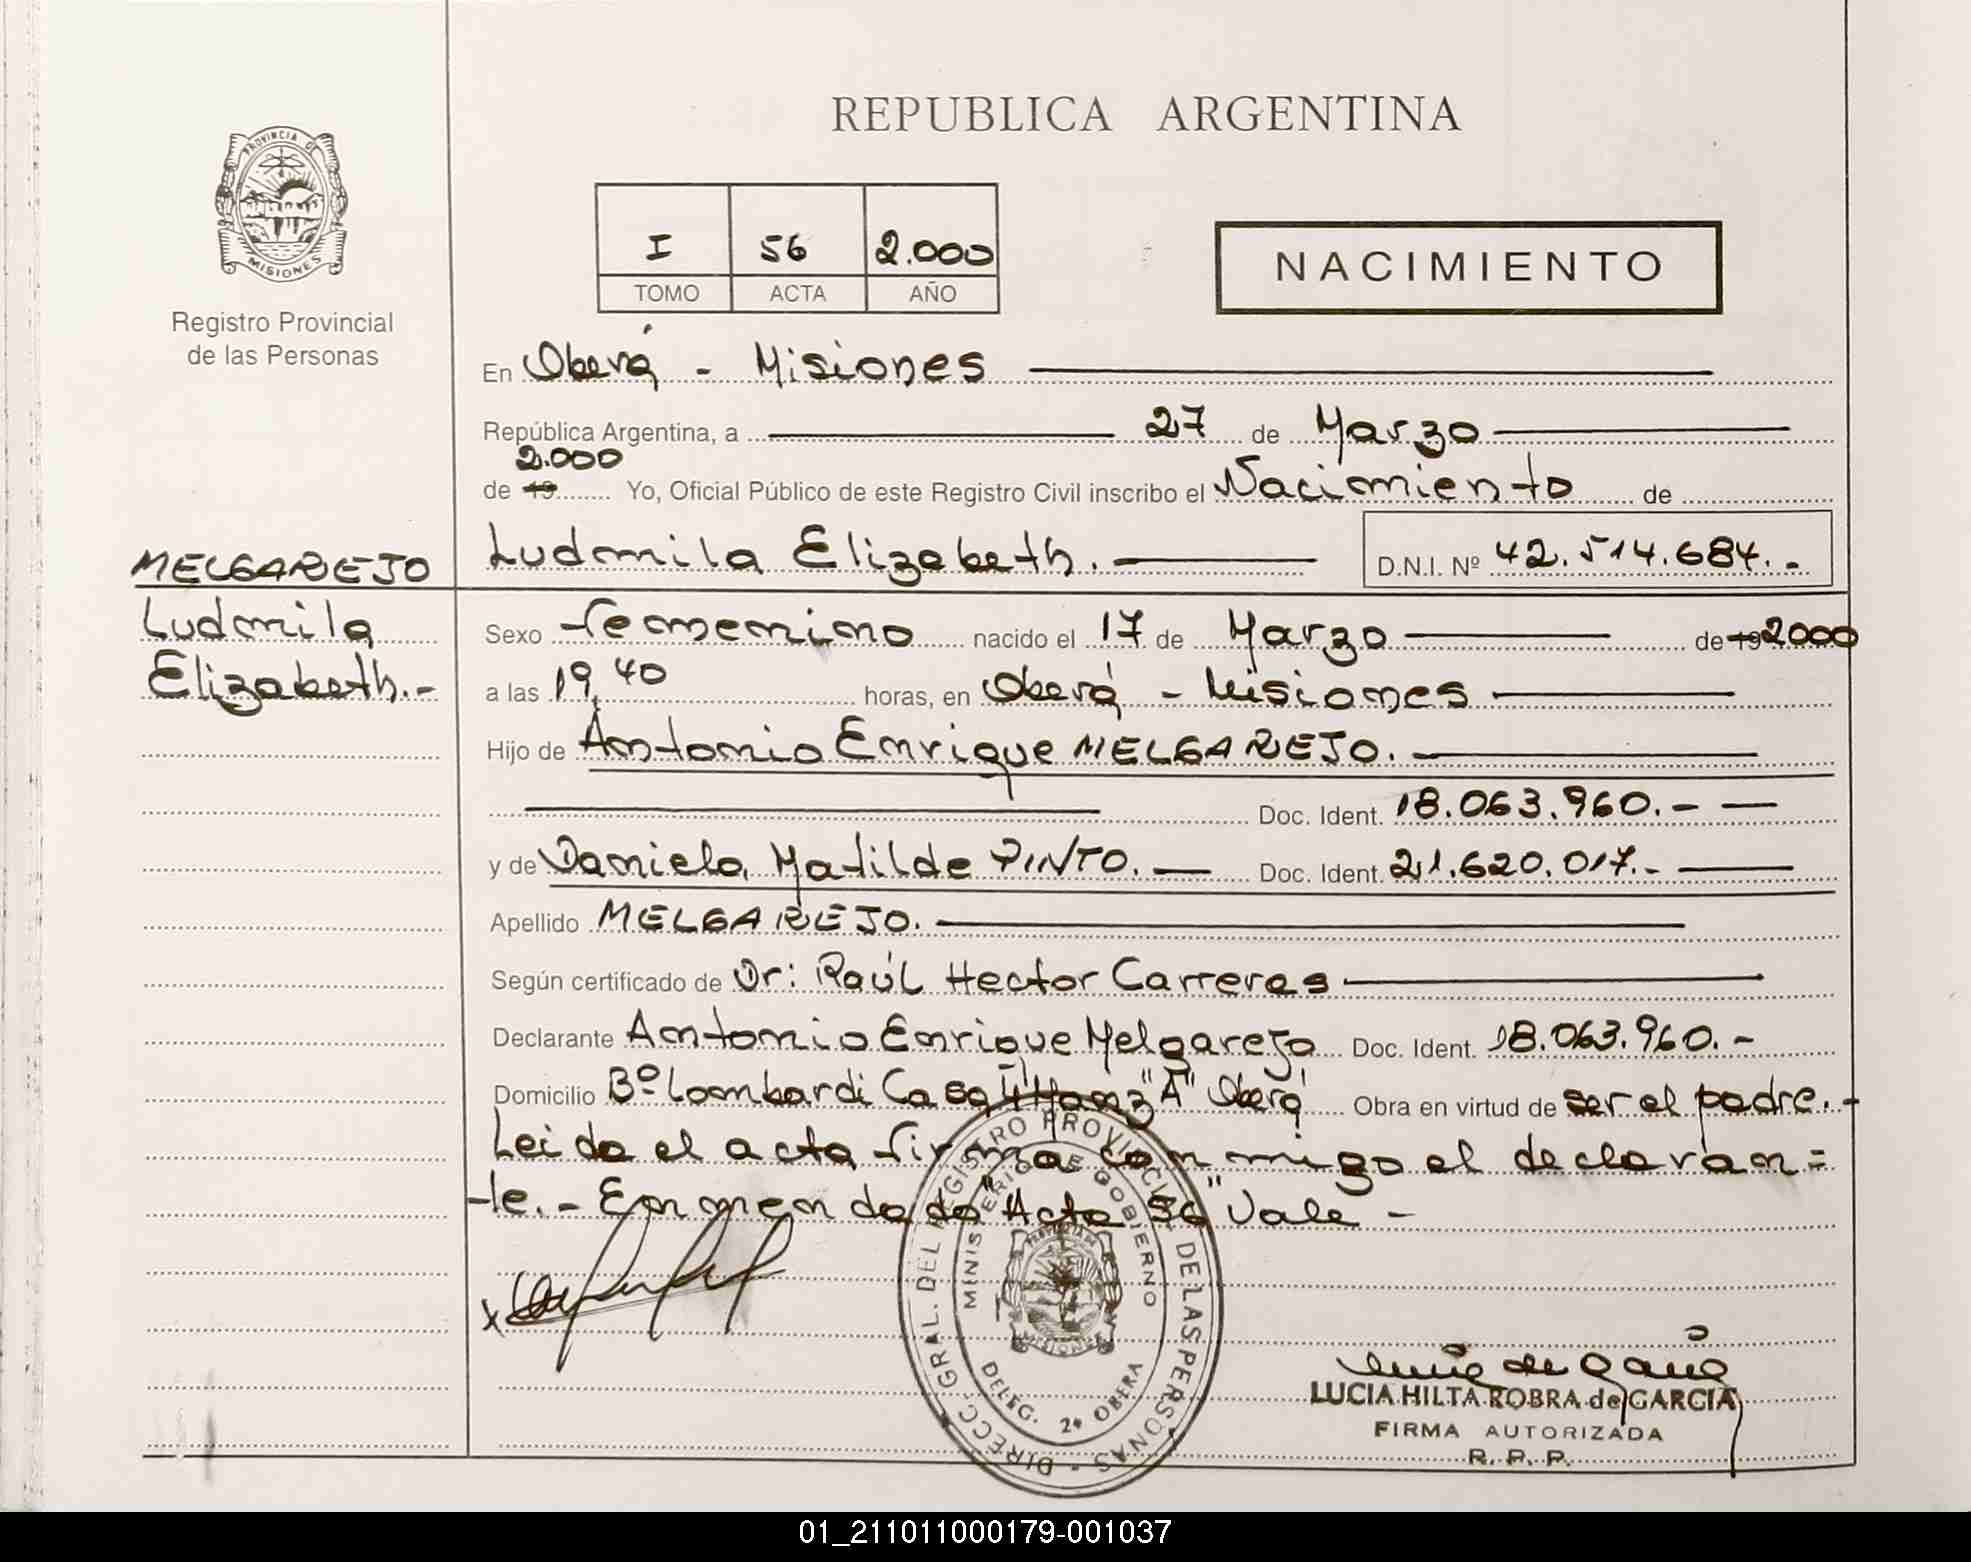 REPUBLICA ARGENTINA
PROVINCIA DE
MISIONES
Registro Provincial
de las Personas
I 56 2.000
TOMO ACTA AÑO
NACIMIENTO
En Oberá - Misiones
República Argentina, a 27 de Marzo
2.000
de 19 Yo, Oficial Público de este Registro Civil inscribo el Nacimiento de
MELGAREJO
Ludmila Elizabeth.
Ludmila Elizabeth. D.N.I. Nº 42.514.684.-
Sexo femenino nacido el 17 de Marzo de 19 2000
a las 19,40 horas, en Oberá - Misiones
Hijo de Antonio Enrique MELGAREJO.
Doc. Ident. 18.063.960.-
y de Daniela Matilde PINTO. Doc. Ident. 21.620.017.-
Apellido MELGAREJO.
Según certificado de Dr: Raúl Hector Carreras
Declarante Antonio Enrique Melgarejo Doc. Ident. 18.063.960.-
Domicilio Bº Lombardi Casa Manz "A" Oberá Obra en virtud de ser el padre.-
Leida el acta firma conmigo el declaran=
te.- Enmendado "Acta 56" Vale -
DIRECC. GRAL. DEL REGISTRO PROVINCIAL DE LAS PERSONAS
MINISTERIO DE GOBIERNO
DELEG. 2ª OBERA
LUCIA HILTA ROBRA de GARCIA
FIRMA AUTORIZADA
R. P. P.
01_211011000179-001037